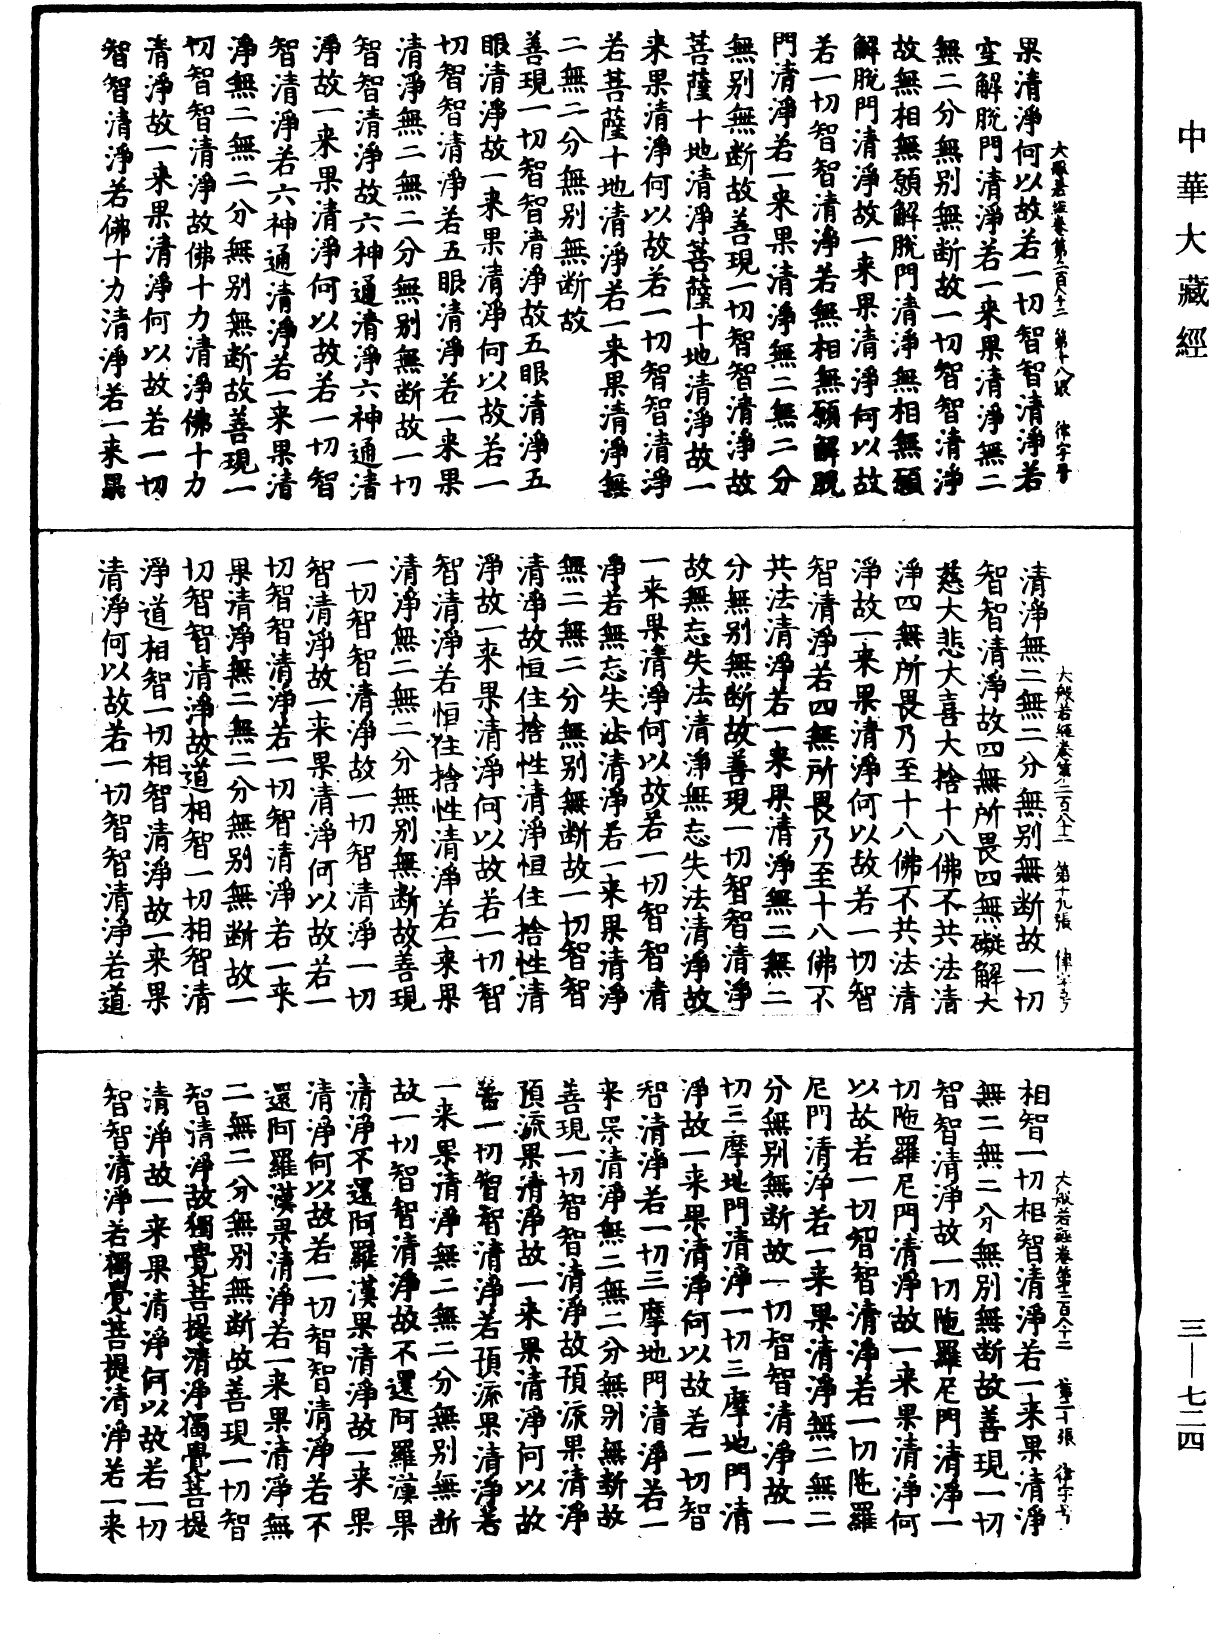 中華大藏經
果清淨何以故若一切智智清淨若
空解脫門清淨若一來果清淨無二
無二分無別無斷故一切智智清淨
故無相無願解脫門清淨無相無願
解脫門清淨故一來果清淨何以故
若一切智智清淨若無相無願解脫
門清淨若一來果清淨無二無二分
無別無斷故善現一切智智清淨故
菩薩十地清淨菩薩十地清淨故一
來果清淨何以故若一切智智清淨
若菩薩十地清淨若一來果清淨無
二無二分無別無斷故
善現一切智智清淨故五眼清淨五
眼清淨故一來果清淨何以故若一
切智智清淨若五眼清淨若一來果
清淨無二無二分無別無斷故一切
智智清淨故六神通清淨六神通清
淨故一來果清淨何以故若一切智
智清淨若六神通清淨若一來果清
淨無二無二分無別無斷故善現一
切智智清淨故佛十力清淨佛十力
清淨故一來果清淨何以故若一切
智智清淨若佛十力清淨若一來果
大般若經卷第二百八十二 第十八張 律字号
清淨無二無二分無別無斷故一切
智智清淨故四無所畏四無礙解大
慈大悲大喜大捨十八佛不共法清
淨四無所畏乃至十八佛不共法清
淨故一來果清淨何以故若一切智
智清淨若四無所畏乃至十八佛不
共法清淨若一來果清淨無二無二
分無別無斷故善現一切智智清淨
故無忘失法清淨無忘失法清淨故
一來果清淨何以故若一切智智清
淨若無忘失法清淨若一來果清淨
無二無二分無別無斷故一切智智
清淨故恒住捨性清淨恒住捨性清
淨故一來果清淨何以故若一切智
智清淨若恒住捨性清淨若一來果
清淨無二無二分無別無斷故善現
一切智智清淨故一切智清淨一切
智清淨故一來果清淨何以故若一
切智智清淨若一切智清淨若一來
果清淨無二無二分無別無斷故一
切智智清淨故道相智一切相智清
淨道相智一切相智清淨故一來果
清淨何以故若一切智智清淨若道
大般若經卷第二百八十二 第十九張 律字号
相智一切相智清淨若一來果清淨
無二無二分無別無斷故善現一切
智智清淨故一切陁羅尼門清淨一
切陁羅尼門清淨故一來果清淨何
以故若一切智智清淨若一切陁羅
尼門清淨若一來果清淨無二無二
分無別無斷故一切智智清淨故一
切三摩地門清淨一切三摩地門清
淨故一來果清淨何以故若一切智
智清淨若一切三摩地門清淨若一
來果清淨無二無二分無別無斷故
善現一切智智清淨故預流果清淨
預流果清淨故一來果清淨何以故
若一切智智清淨若預流果清淨若
一來果清淨無二無二分無別無斷
故一切智智清淨故不還阿羅漢果
清淨不還阿羅漢果清淨故一來果
清淨何以故若一切智智清淨若不
還阿羅漢果清淨若一來果清淨無
二無二分無別無斷故善現一切智
智清淨故獨覺菩提清淨獨覺菩提
清淨故一來果清淨何以故若一切
智智清淨若獨覺菩提清淨若一來
大般若經卷第二百八十二 第二十張 律字号
三—七二四